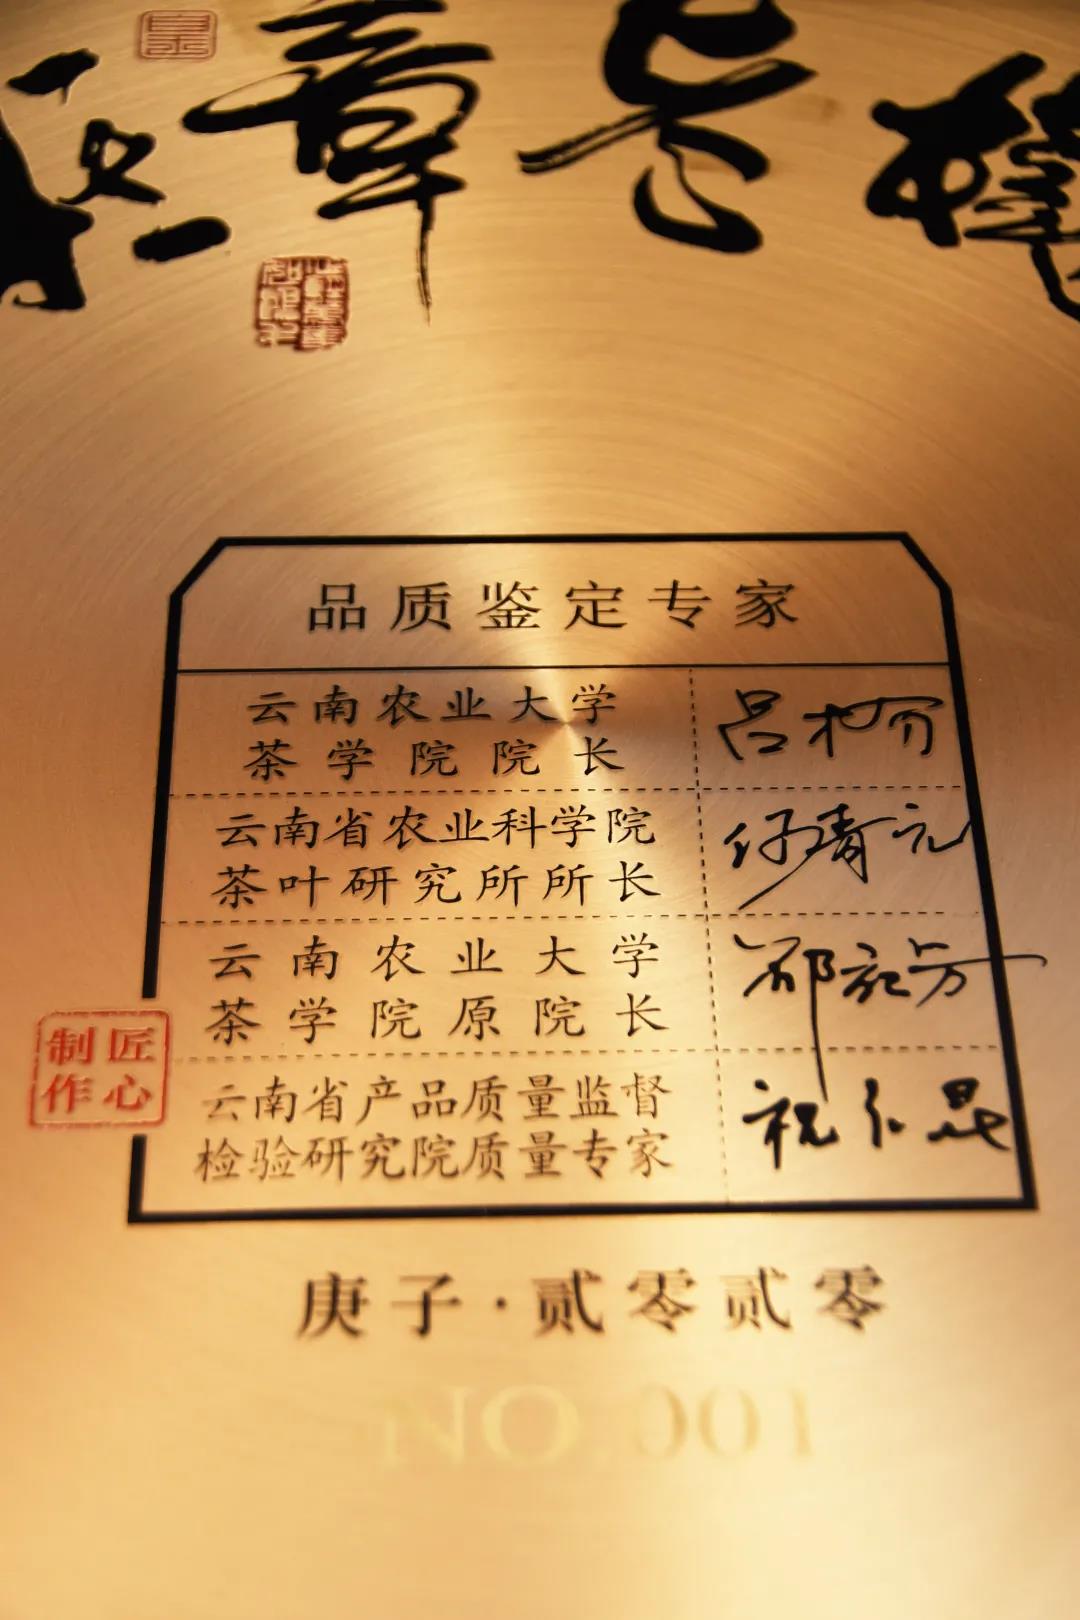 章
品质鉴定专家
云南农业大学
茶学院院长
云南省农业科学院
茶叶研究所所长
何青元
云南农业大学
茶学院原院长
邵宛芳
云南省产品质量监督
检验研究院质量专家
祝红昆
匠心
制作
庚子·贰零贰零
NO.001